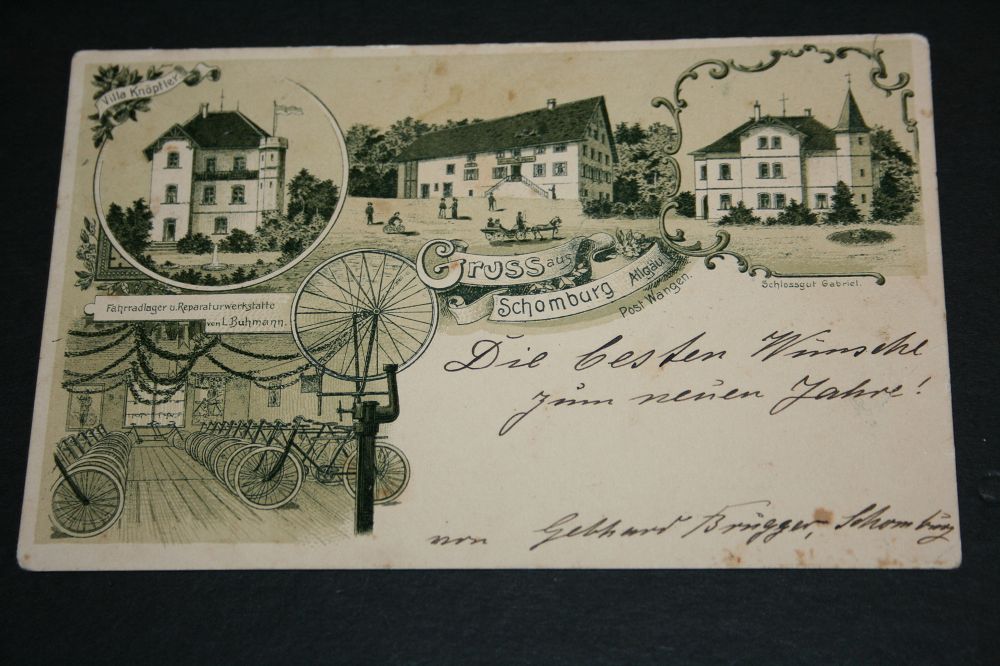 Villa Knöpfler
Gruss aus
Schomburg Allgäu
Post Wangen.
Schlossgut Gabriel.
Fahrradlager u. Reparaturwerkstätte
von L. Buhmann.
Die besten Wünsche
zum neuen Jahre!
von Gebhard Brugger, Schomburg